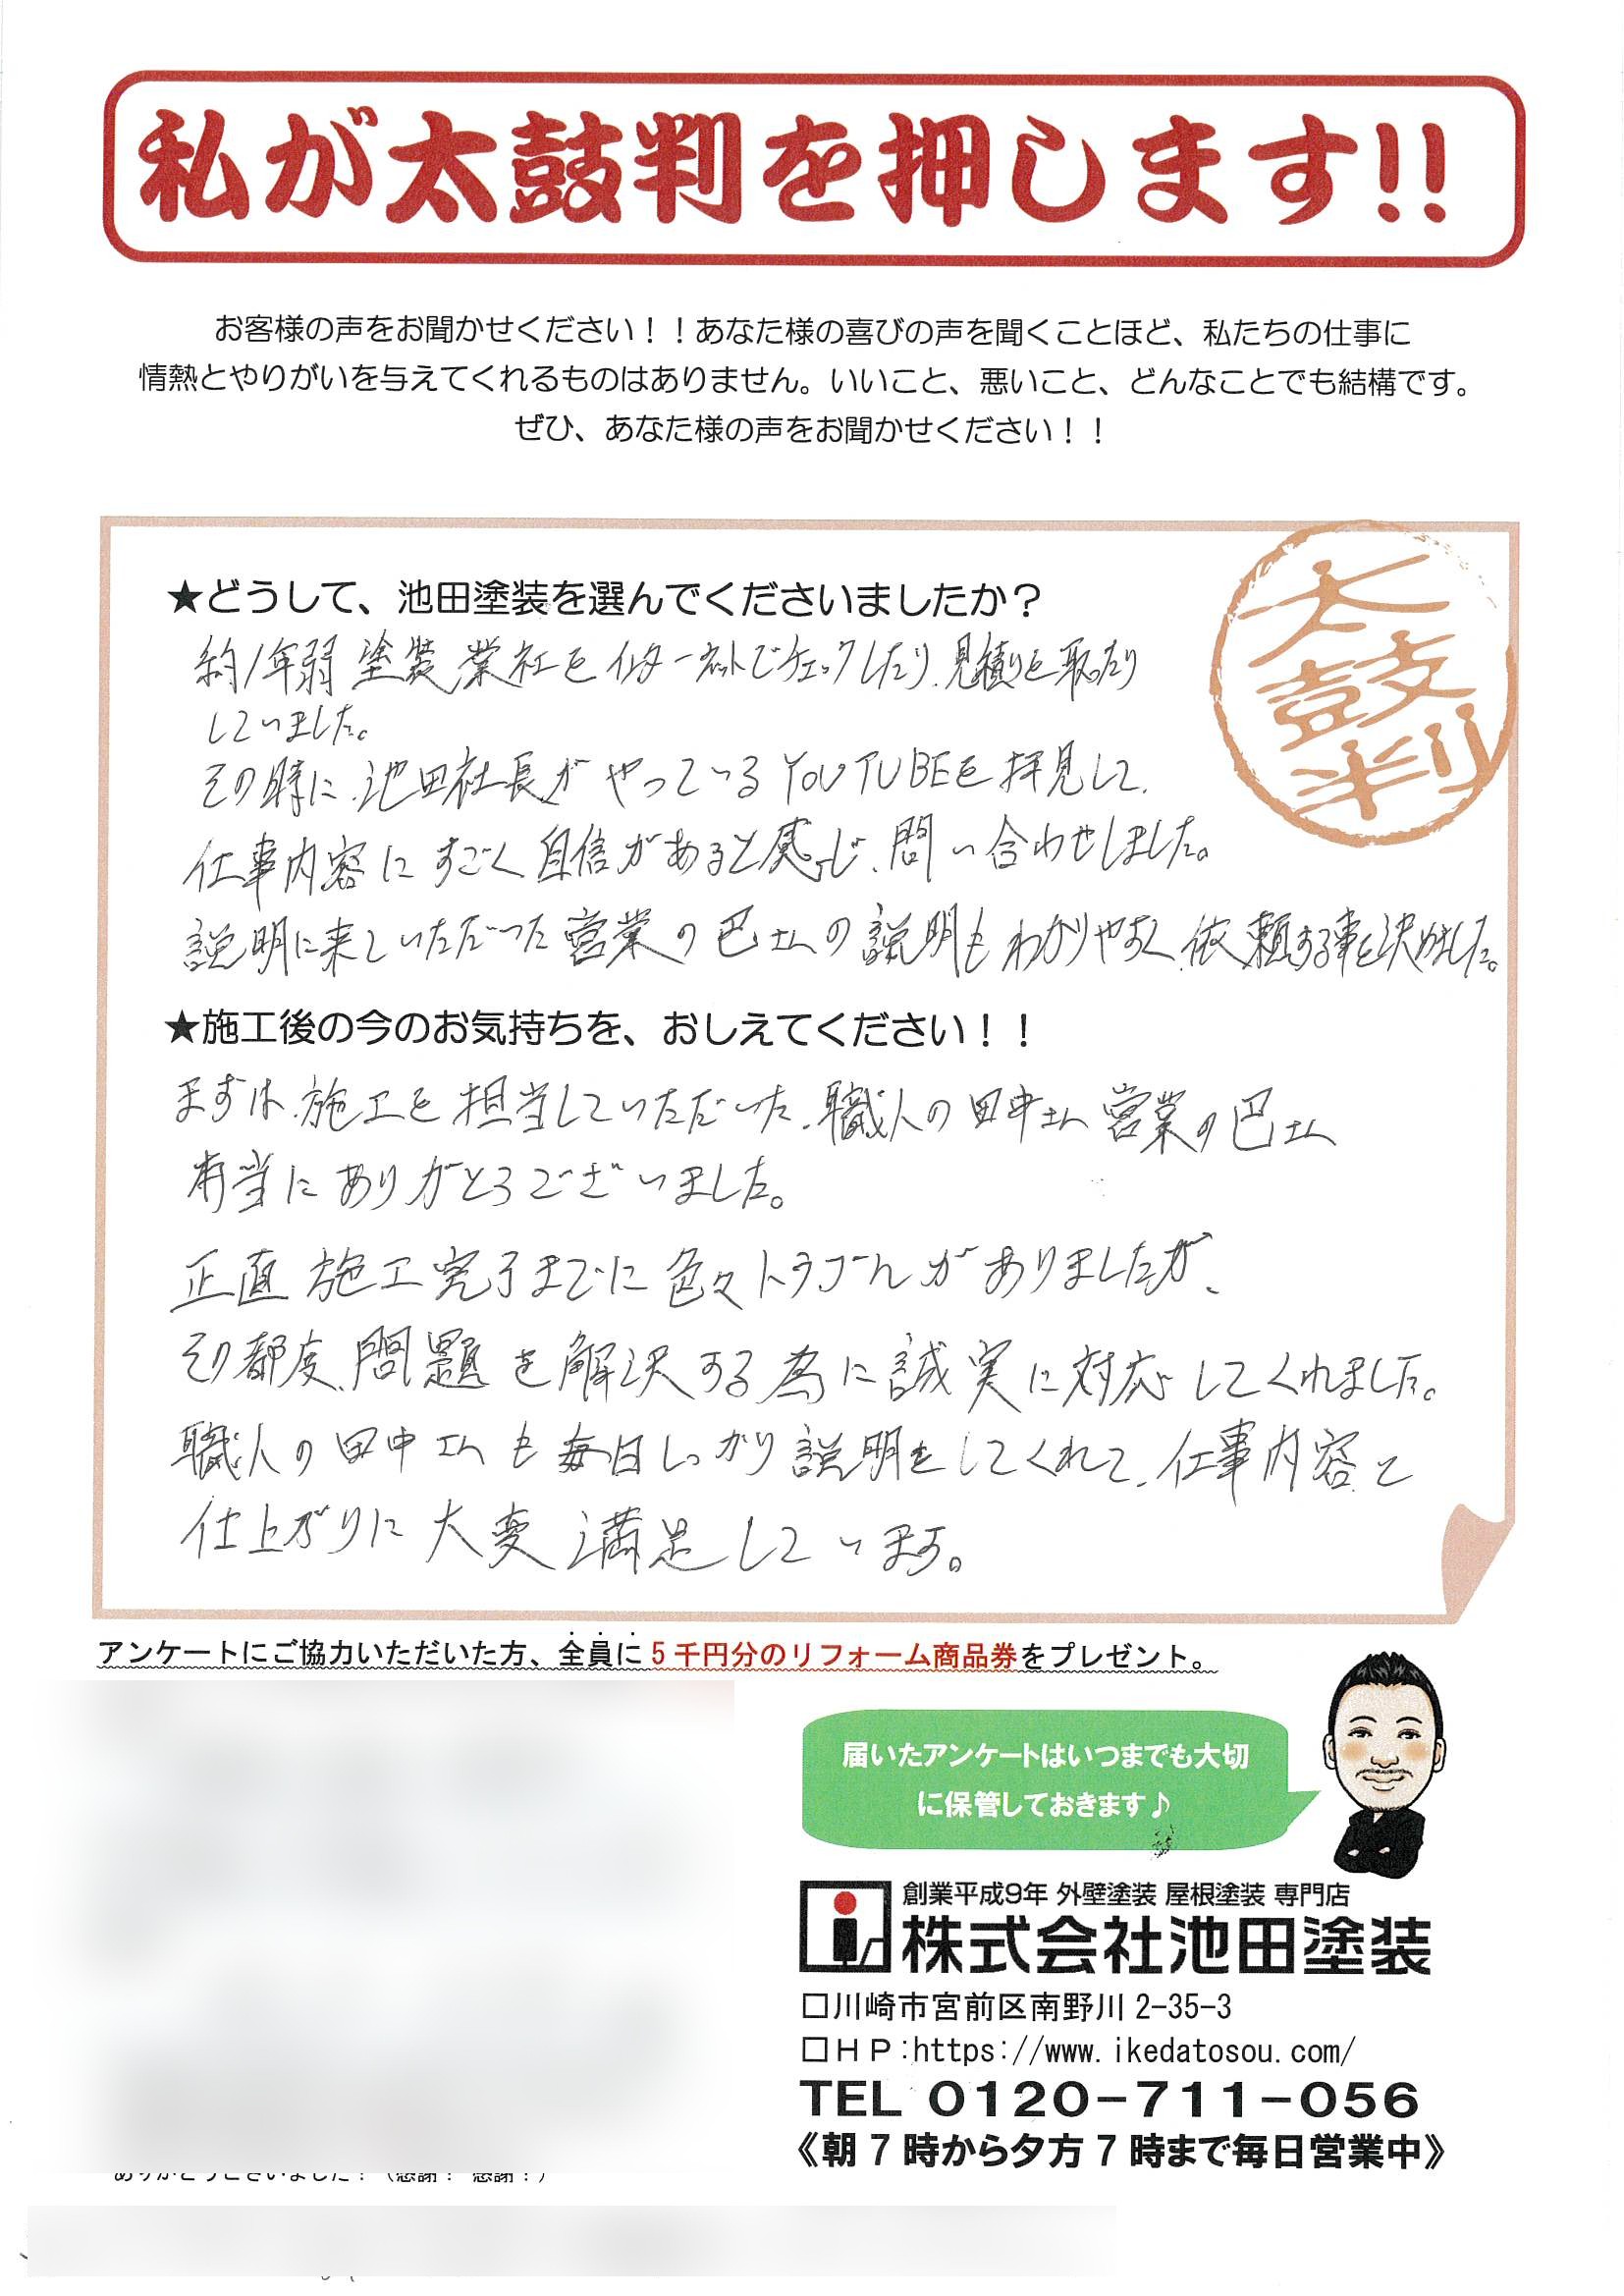 私が太鼓判を押します!!
お客様の声をお聞かせください！！あなた様の喜びの声を聞くことほど、私たちの仕事に
情熱とやりがいを与えてくれるものはありません。いいこと、悪いこと、どんなことでも結構です。
ぜひ、あなた様の声をお聞かせください！！
太鼓判
★どうして、池田塗装を選んでくださいましたか？
約1年弱 塗装業社をインターネットでチェックしたり、見積りを取ったり
していました。
その時に、池田社長がやっているYOUTUBEを拝見して、
仕事内容にすごく自信があると感じ、問い合わせしました。
説明に来ていただいた営業の巴さんの説明もわかりやすく、依頼する事を決めました。
★施工後の今のお気持ちを、おしえてください！！
まずは、施工を担当していただいた、職人の田中さん 営業の巴さん
本当にありがとうございました。
正直 施工完了までに色々トラブルがありましたが、
その都度、問題を解決する為に誠実に対応してくれました。
職人の田中さんも毎日しっかり説明をしてくれて、仕事内容と
仕上がりに大変満足しています。
アンケートにご協力いただいた方、全員に5千円分のリフォーム商品券をプレゼント。
届いたアンケートはいつまでも大切
に保管しておきます♪
創業平成9年 外壁塗装 屋根塗装 専門店
株式会社池田塗装
□川崎市宮前区南野川2-35-3
□ＨＰ:https://www.ikedatosou.com/
TEL 0120-711-056
《朝7時から夕方7時まで毎日営業中》
ありがとうございました！（感謝！ 感謝！）